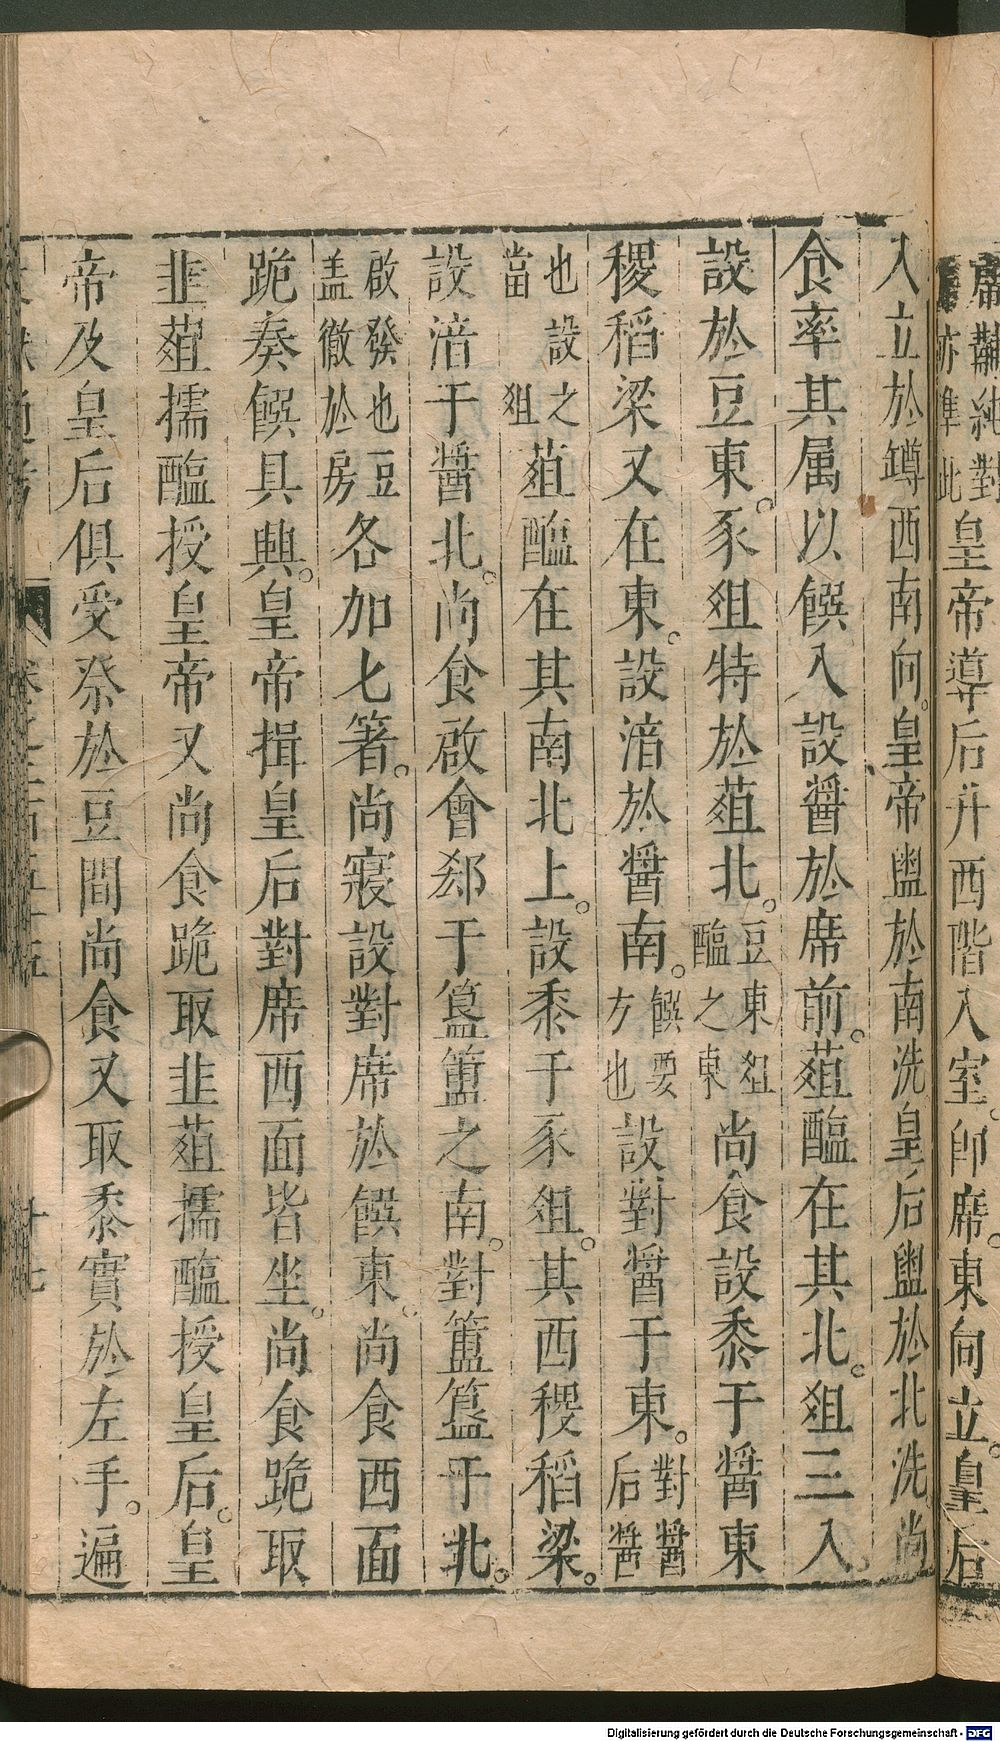 皇帝導后升西階入室卽席。東向立。皇后
入立於罇西南向。皇帝盥於南洗皇后盥於北洗。尚
食率其属以饌入設醬於席前。葅醢在其北。俎三入。
設於豆東。豕俎特於葅北。豆東俎醢之東尚食設黍于醬東
稷稻粱又在東。設湆於醬南。饌要方也設對醬于東。對醬后醬
也設之當俎葅醢在其南北上。設黍于豕俎。其西稷稻粱。
設湆于醬北。尚食啟會郄于簋簠之南。對簠簋于北。
啟發也豆盖徹於房各加匕箸。尚寢設對席於饌東。尚食西面
跪奏饌具興。皇帝揖皇后對席西面皆坐。尚食跪取
韭葅擩醢授皇帝又尚食跪取韭葅擩醢授皇后。皇
帝及皇后俱受祭於豆間尚食又取黍實於左手。遍
十七
Digitalisierung gefördert durch die Deutsche Forschungsgemeinschaft - DFG